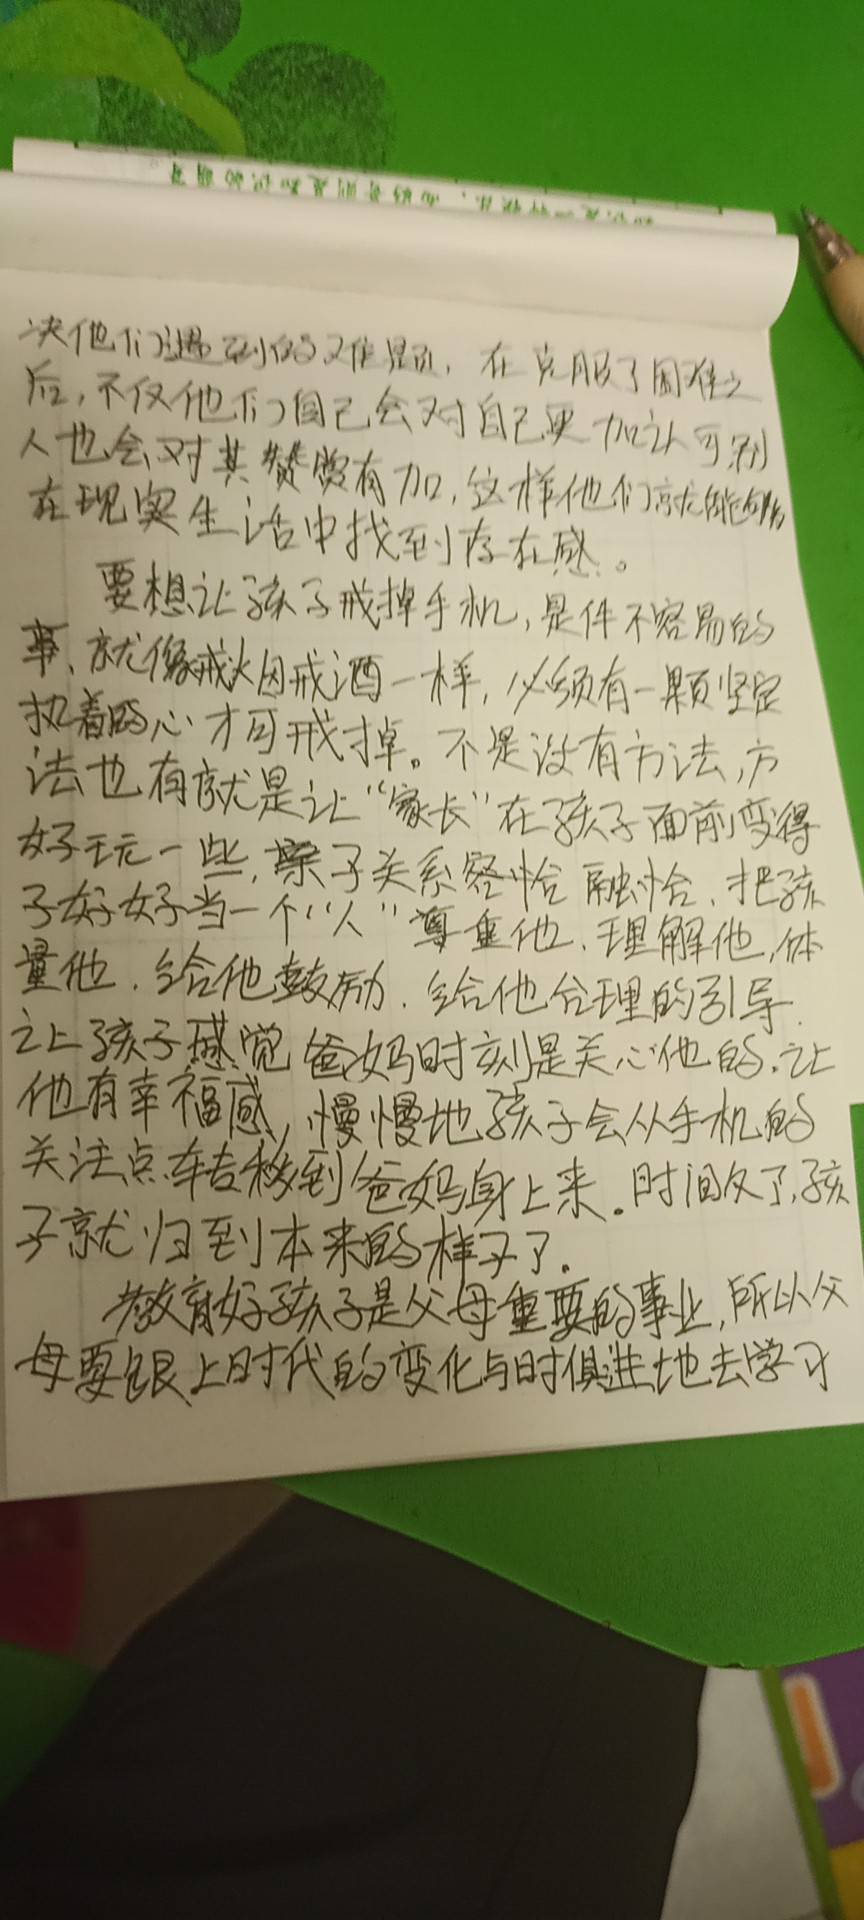 决他们遇到的难题，在克服了困难之
后，不仅他们自己会对自己更加认可别
人也会对其赞赏有加，这样他们就能够
在现实生活中找到存在感。
要想让孩子戒掉手机，是件不容易的
事，就像戒烟戒酒一样，必须有一颗坚定
执着的心才可戒掉。不是没有方法，方
法也有就是让“家长”在孩子面前变得
好玩一些，亲子关系 融恰，把孩
子好好当一个“人”尊重他，理解他，体
量他，给他鼓励，给他合理的引导，
让孩子感觉爸妈时刻是关心他的，让
他有幸福感，慢慢地孩子会从手机的
关注点转移到爸妈身上来。时间久了，孩
子就归到本来的样子了。
教育好孩子是父母重要的事业，所以父
母要跟上时代的变化与时俱进地去学习